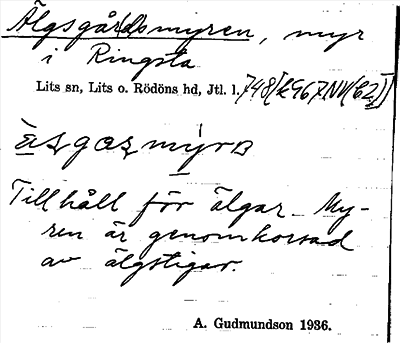 Älgsgårdsmyren, myr
i Ringsta
Lits sn, Lits o. Rödöns hd, Jtl. l. 748
Tillhåll för älgar. My-
ren är genomkorsad
av älgstigar.
A. Gudmundson 1936.